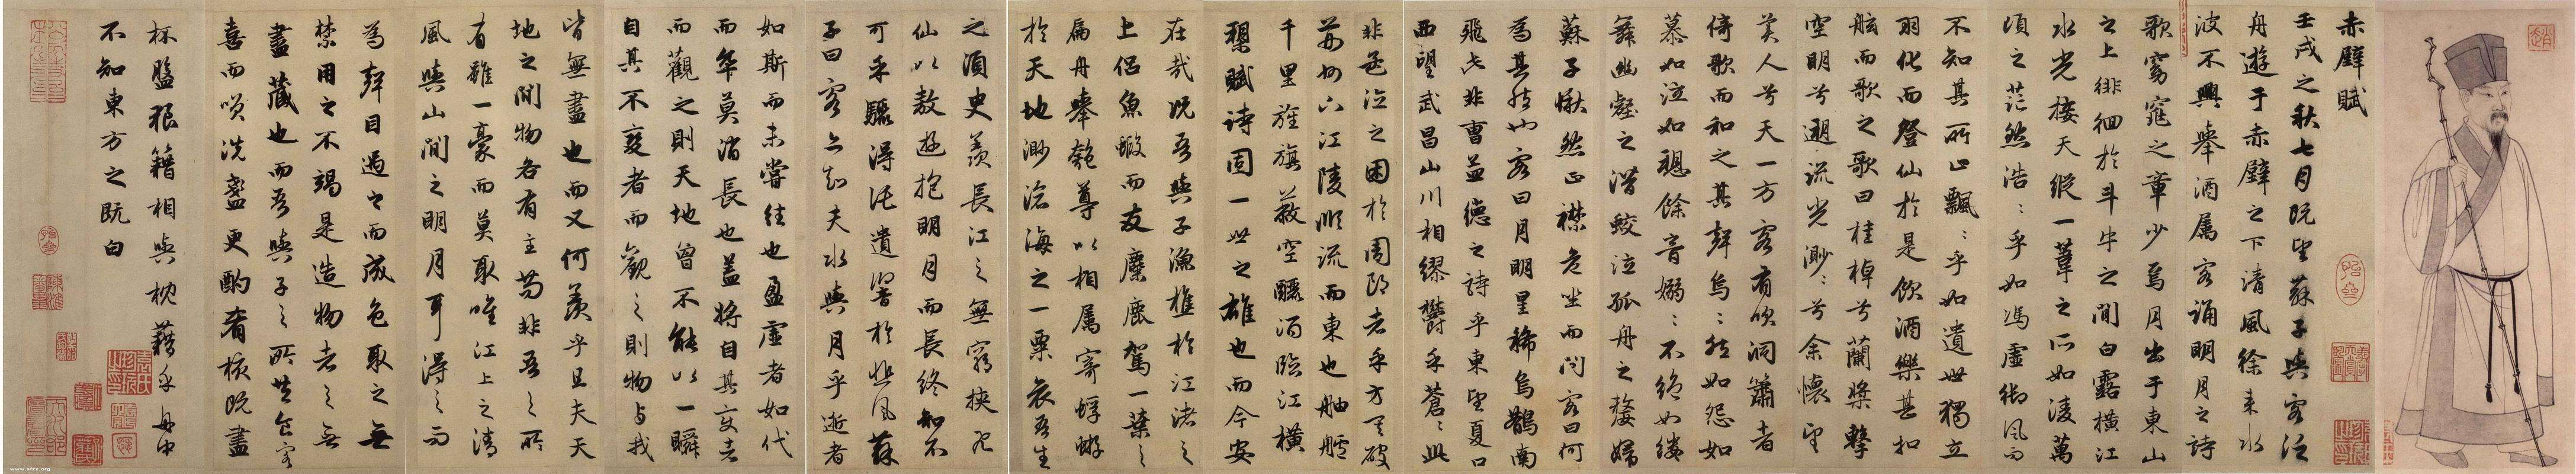 赤壁賦
壬戌之秋七月既望蘇子與客泛
舟遊于赤壁之下清風徐来水
波不興舉酒属客誦明月之詩
歌窈窕之章少焉月出于東山
之上徘徊於斗牛之間白露横江
水光接天縱一葦之所如凌萬
頃之茫然浩〻乎如馮虚御風而
不知其所止飄〻乎如遺世獨立
羽化而登仙於是飲酒樂甚扣
舷而歌之歌曰桂棹兮蘭槳擊
空明兮遡流光渺〻兮余懷望
美人兮天一方客有吹洞簫者
倚歌而和之其聲烏〻然如怨如
慕如泣如愬餘音嫋〻不絶如縷
舞幽壑之潛蛟泣孤舟之嫠婦
蘇子愀然正襟危坐而問客曰何
為其然也客曰月明星稀烏鵲南
飛此非曹孟德之詩乎東望夏口
西望武昌山川相繆鬱乎蒼〻此
非孟德之困於周郎者乎方其破
荊州下江陵順流而東也舳艫
千里旌旗蔽空釃酒臨江橫
槊賦詩固一世之雄也而今安
在哉況吾與子漁樵於江渚之
上侣魚蝦而友麋鹿駕一葉之
扁舟舉匏尊以相属寄蜉蝣
於天地渺滄海之一粟哀吾生
之須臾羨長江之無窮挾飛
仙以敖遊抱明月而長終知不
可乎驟得託遺響於悲風蘇
子曰客亦知夫水與月乎逝者
如斯而未嘗往也盈虚者如代
而卒莫消長也蓋將自其变者
而觀之則天地曾不能以一瞬
自其不変者而觀之則物與我
皆無盡也而又何羨乎且夫天
地之間物各有主苟非吾之所
有雖一豪而莫取唯江上之清
風與山間之明月耳得之而
為聲目遇之而成色取之無
禁用之不竭是造物者之無
盡藏也而吾與子之所共食客
喜而笑洗盞更酌肴核既盡
杯盤狼籍相與枕藉乎舟中
不知東方之既白